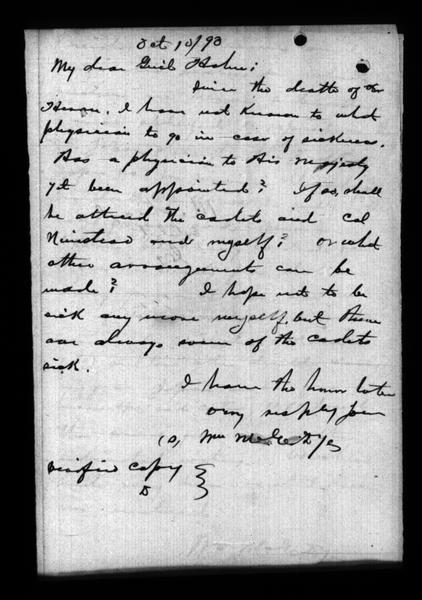 Oct 10/93
My dear Genl Hahn;
Since the death of Dr
Heron, I have not known to what
physician to go in case of sickness.
Has a physician to His Majesty
yet been appointed? If so, shall
he attend the cadets and Col
Nienstead and myself? or what
other arrangements can be
made? I hope not to be
sick any more myself, but there
are always some of the cadets
sick.
I have the honor to be
very resptly your
(s) Wm McE Dye
verified copy
D